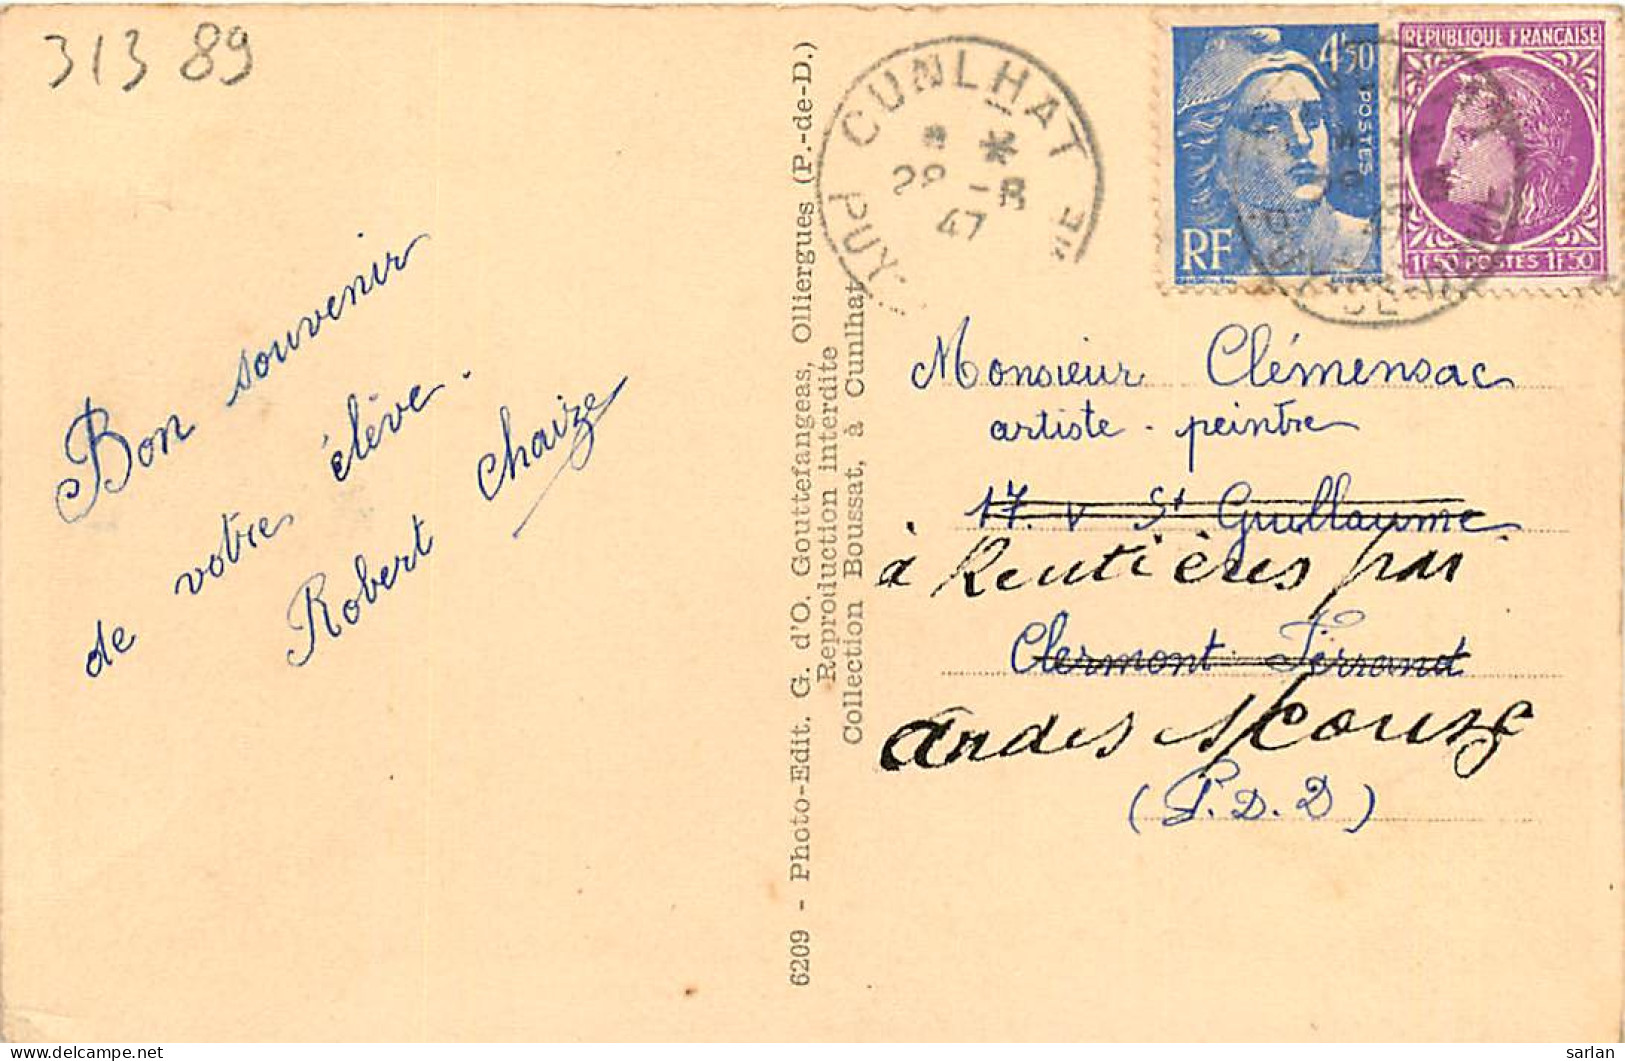 313 89
Bon souvenir
de votre élève.
Robert Chaize
6209 - Photo-Edit. G. d'O. Gouttefangeas, Olliergues (P.-de-D.)
Reproduction interdite
Collection Boussat, à Cunlhat
CUNLHAT
* *
29 -8
47
PUY-
ME
4F50
POSTES
RF
REPUBLIQUE FRANÇAISE
1F50 POSTES 1F50
Monsieur Clémensac
artiste-peintre
17. v St Guillaume
à Rentières par
Clermont-Ferrand
Ardes s/Couze
(P.D.D)
sarlan